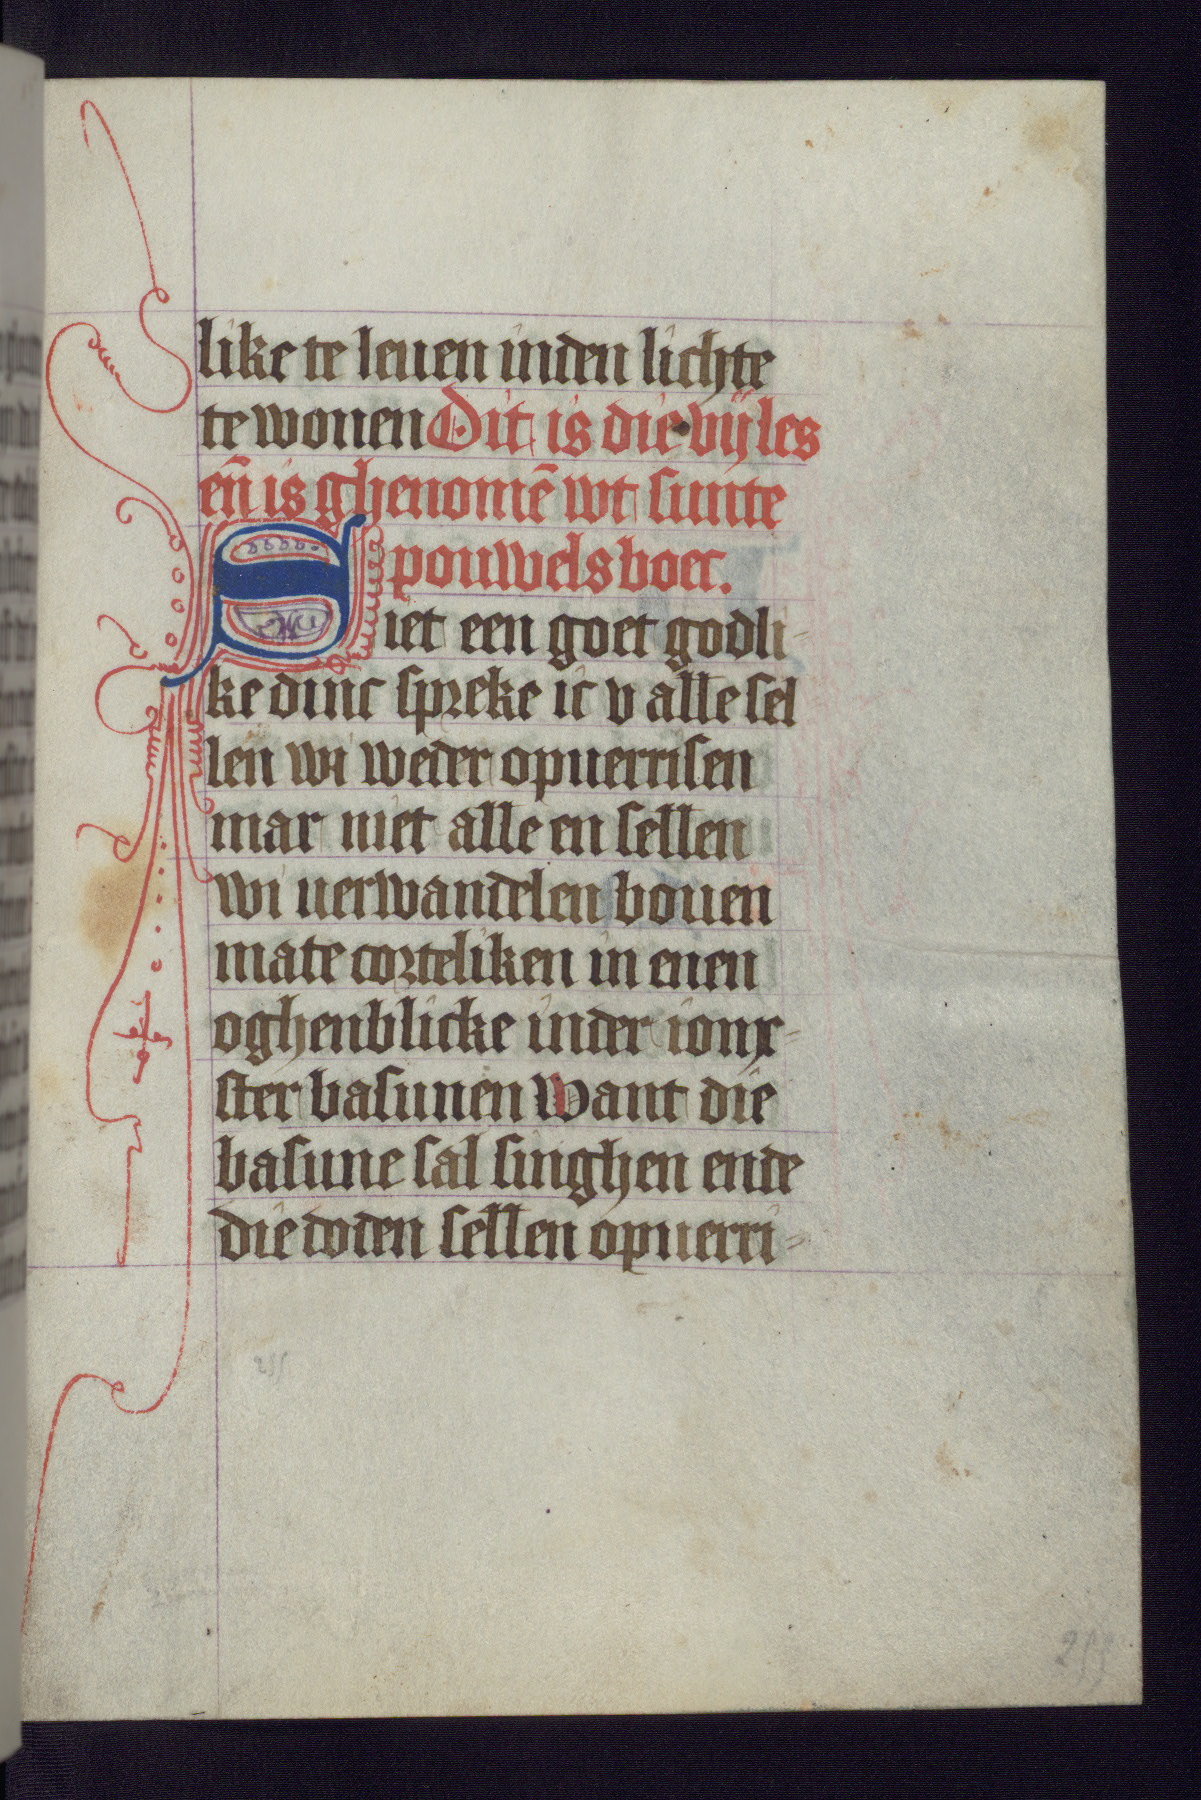 like te leuen inden lichte
te wonen Dit is die vij les
en̄ is ghenomē wt sunte
pouwels boec.
Siet een goet godli-
ke dinc spreke ic v alle sel
len wi weder opuerrisen
mar niet alle en sellen
wi uerwandelen bouen
mate corteliken in enen
oghenblicke inder ionx-
ster basunen Want die
basune sal singhen ende
die doden sellen opuerri-
255
255